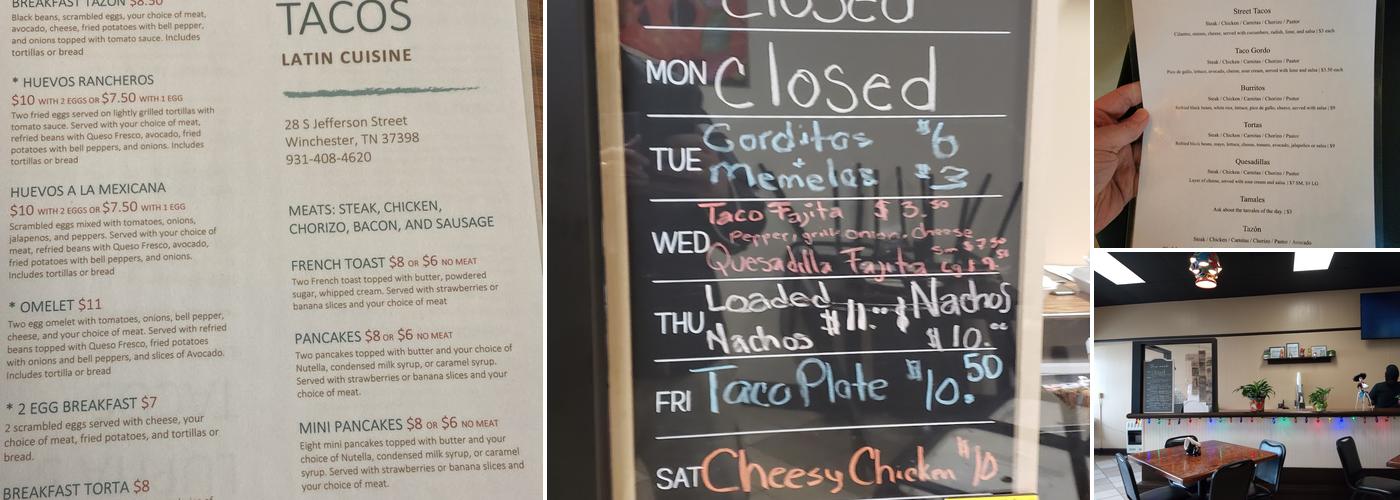 BREAKFAST TAZON $8.50
Black beans, scrambled eggs, your choice of meat,
avocado, cheese, fried potatoes with bell pepper,
and onions topped with tomato sauce. Includes
tortillas or bread
* HUEVOS RANCHEROS
$10 WITH 2 EGGS OR $7.50 WITH 1 EGG
Two fried eggs served on lightly grilled tortillas with
tomato sauce. Served with your choice of meat,
refried beans with Queso Fresco, avocado, fried
potatoes with bell peppers, and onions. Includes
tortillas or bread
HUEVOS A LA MEXICANA
$10 WITH 2 EGGS OR $7.50 WITH 1 EGG
Scrambled eggs mixed with tomatoes, onions,
jalapenos, and peppers. Served with your choice of
meat, refried beans with Queso Fresco, avocado,
fried potatoes with bell peppers and onions.
Includes tortillas or bread
* OMELET $11
Two egg omelet with tomatoes, onions, bell pepper,
cheese, and your choice of meat. Served with refried
beans topped with Queso Fresco, fried potatoes
with onions and bell peppers, and slices of Avocado.
Includes tortilla or bread
* 2 EGG BREAKFAST $7
2 scrambled eggs served with cheese, your
choice of meat, fried potatoes, and tortillas or
bread.
BREAKFAST TORTA $8
TACOS
LATIN CUISINE
28 S Jefferson Street
Winchester, TN 37398
931-408-4620
MEATS: STEAK, CHICKEN,
CHORIZO, BACON, AND SAUSAGE
FRENCH TOAST $8 OR $6 NO MEAT
Two French toast topped with butter, powdered
sugar, whipped cream. Served with strawberries or
banana slices and your choice of meat
PANCAKES $8 OR $6 NO MEAT
Two pancakes topped with butter and your choice of
Nutella, condensed milk syrup, or caramel syrup.
Served with strawberries or banana slices and your
choice of meat.
MINI PANCAKES $8 OR $6 NO MEAT
Eight mini pancakes topped with butter and your
choice of Nutella, condensed milk syrup, or caramel
syrup. Served with strawberries or banana slices and
your choice of meat.
Closed
MON Closed
TUE Gorditas $6
+
Memelas $3
WED Taco Fajita $3.50
Pepper, grill onion, cheese
Quesadilla Fajita Sm $7.50
Lg $9.50
THU Loaded Nachos $11.00 Nachos $10.00
FRI Taco Plate $10.50
SAT Cheesy Chicken $10
Street Tacos
Steak / Chicken / Carnitas / Chorizo / Pastor
Cilantro, onions, cheese, served with cucumbers, radish, lime, and salsa | $3 each
Taco Gordo
Steak / Chicken / Carnitas / Chorizo / Pastor
Pico de gallo, lettuce, avocado, cheese, sour cream, served with lime and salsa | $3.50 each
Burritos
Steak / Chicken / Carnitas / Chorizo / Pastor
Refried black beans, white rice, lettuce, pico de gallo, cheese, served with salsa | $9
Tortas
Steak / Chicken / Carnitas / Chorizo / Pastor
Refried black beans, mayo, lettuce, cheese, tomato, avocado, jalapeños or salsa | $9
Quesadillas
Steak / Chicken / Carnitas / Chorizo / Pastor
Layer of cheese, served with sour cream and salsa | $7 SM, $9 LG
Tamales
Ask about the tamales of the day | $3
Tazón
Steak / Chicken / Carnitas / Chorizo / Pastor / Avocado